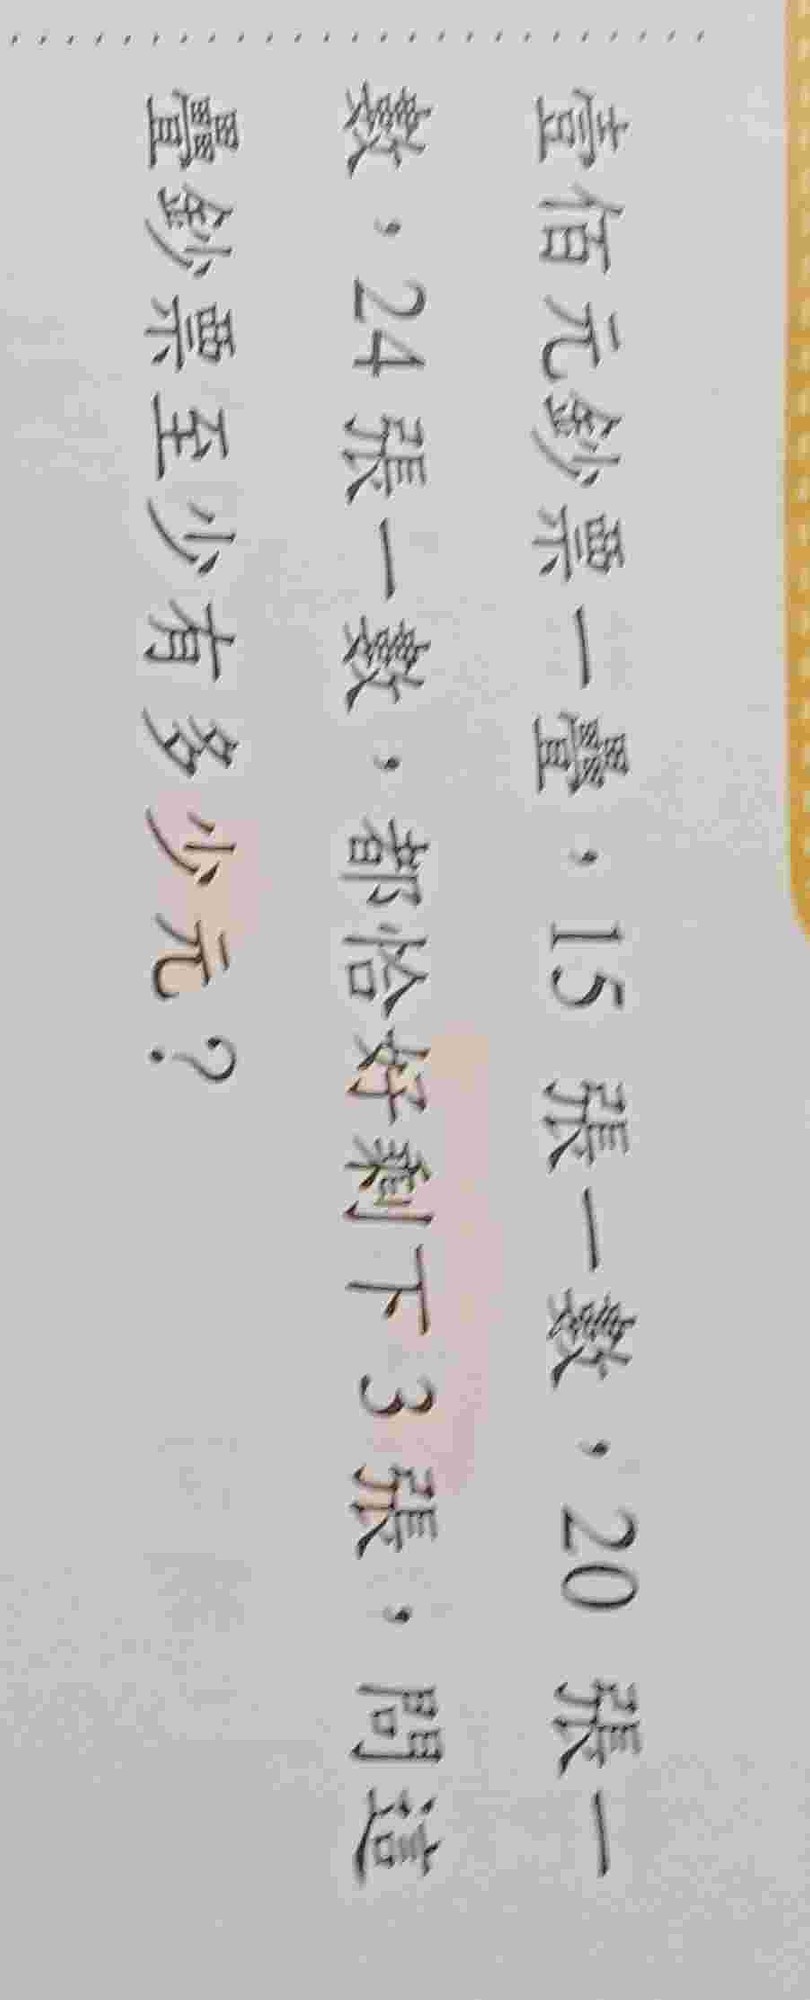 壹佰元鈔票一疊,15 張一數,20 張一
數,24 張一數,都恰好剩下 3 張,問這
疊鈔票至少有多少元?